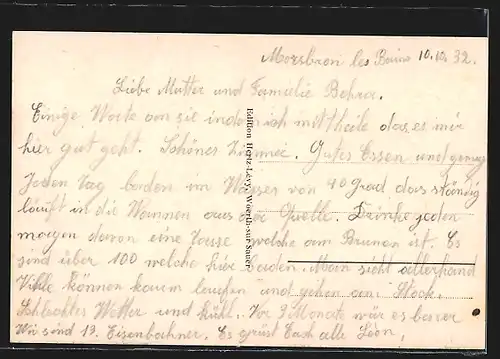 Morsbron les Bains 10.10.32.
Liebe Mutter und Familie
Einige Worte an sie indem ich mittheile das es mir
hier gut geht. Schönes Zimmer. Gutes Essen und genug
Jeden Tag baden im Wasser von 40 Grad das ständig
läuft in die Wannen aus der Quelle. Trinke jeden
morgen davon eine Tasse welche am Brunen ist. Es
sind über 100 welche hier baden. Man sieht allerhand
Viele können kaum laufen und gehen am Stock.
Schlechtes Wetter und kühl. Vor 2 Monate wär es besser
Wir sind 13 Eisenbahner. Es grüst Euch alle Léon,
Edition Hertz-Lévy, Woerth-sur-Sauer